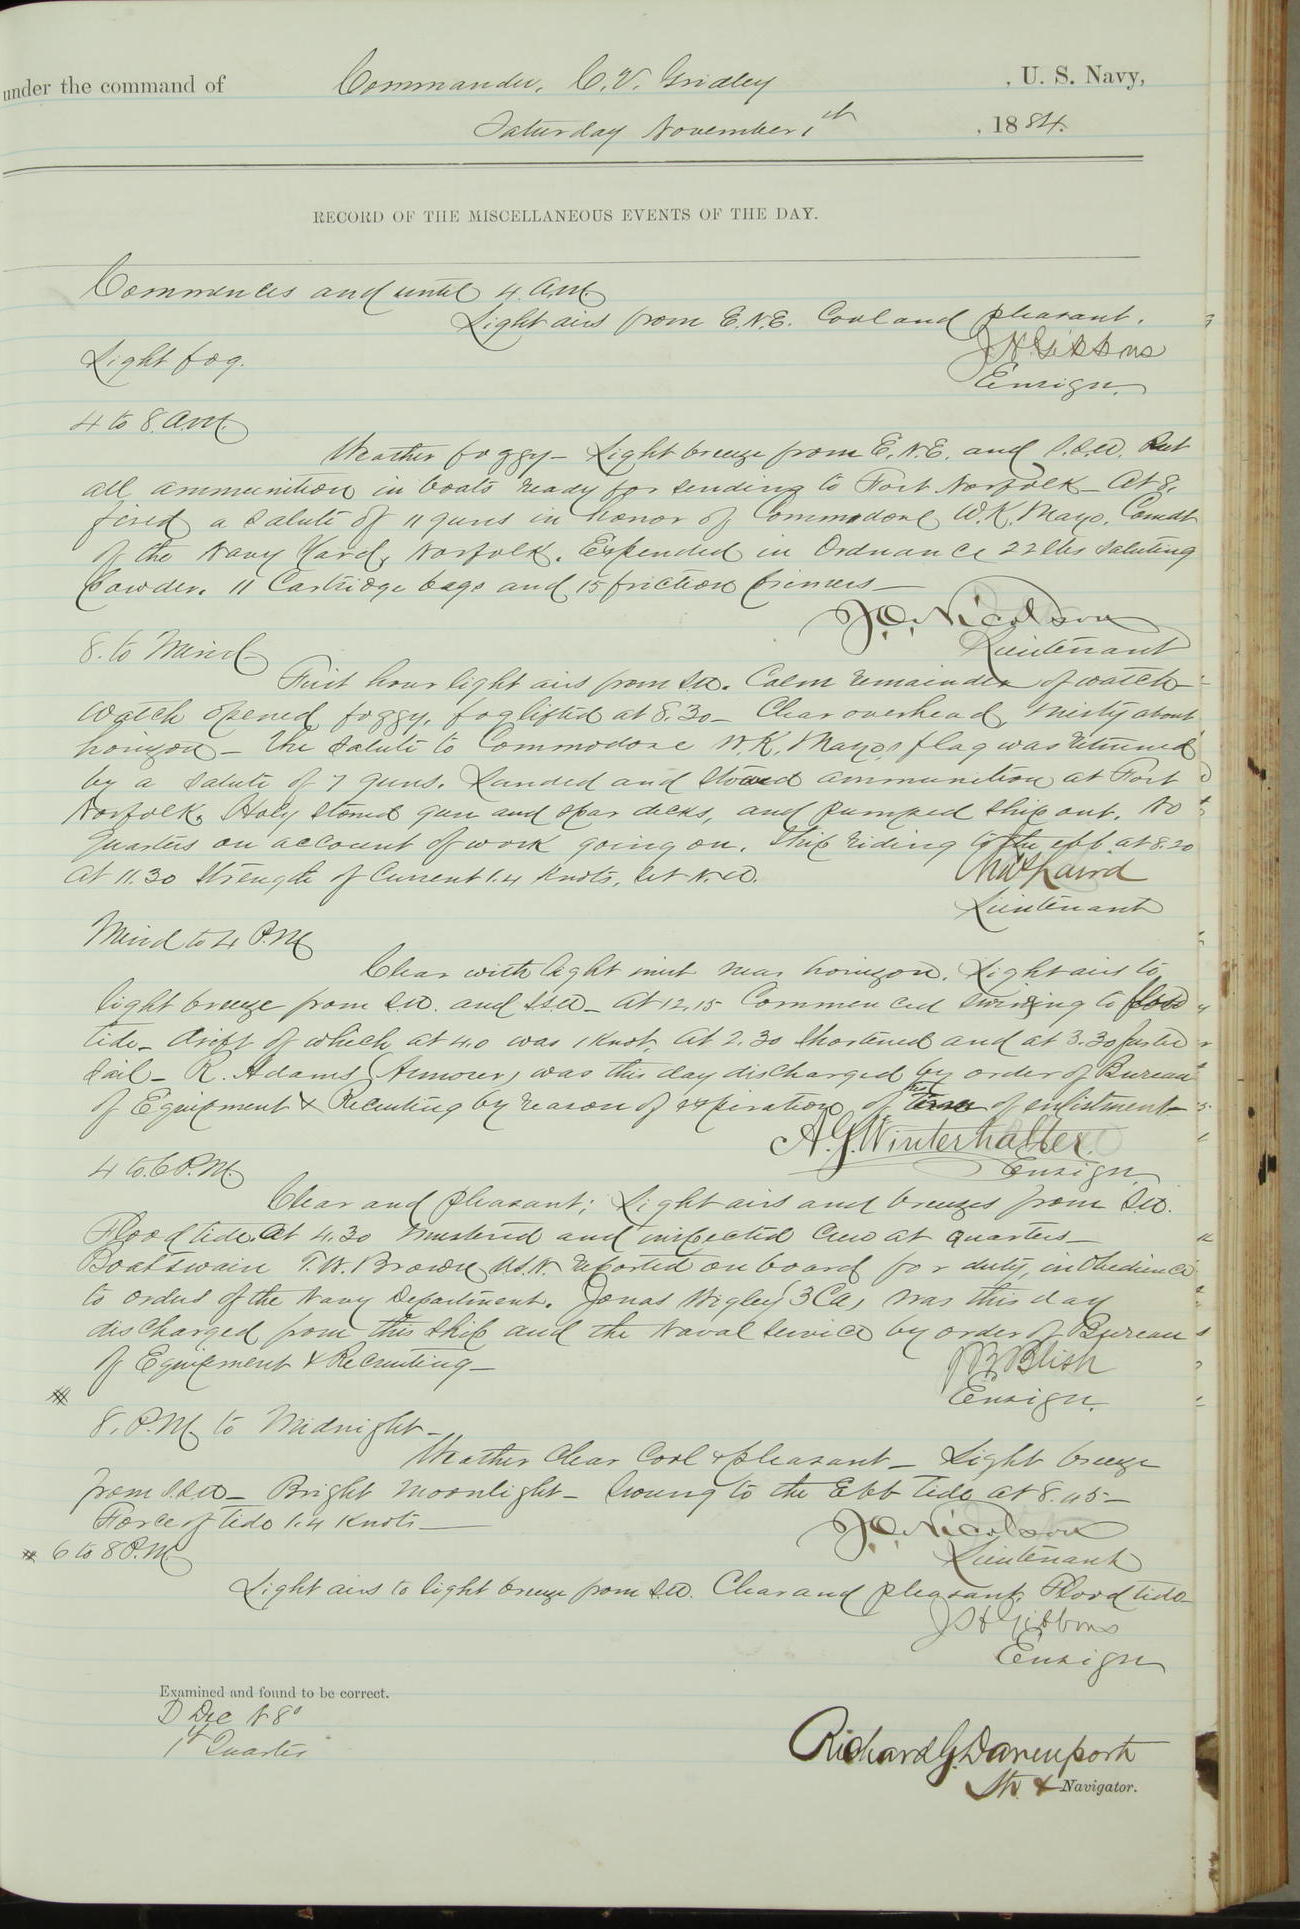 under the command of Commander, C. V. Gridley , U. S. Navy,
Saturday November 1st , 1884.
RECORD OF THE MISCELLANEOUS EVENTS OF THE DAY.
Commences and until 4 A.M.
Light airs from E.N.E. Cool and pleasant.
Light fog.
J H Gibbons
Ensign.
4 to 8. A.M.
Weather foggy - Light breeze from E.N.E. and S.S.W. Put
all ammunition in boats ready for sending to Fort Norfolk - At 8.
fired a salute of 11 guns in honor of Commodore W. K. Mayo. Comdt
of the Navy Yard, Norfolk. Expended in Ordnance 22 lbs saluting
powder. 11 Cartridge bags and 15 friction primers -
J. O. Nicolson
Lieutenant
8. to Merid
First hour light airs from SW. Calm remainder of watch -
Watch opened foggy, fog lifted at 8.30 - Clear overhead, misty about
horizon - The salute to Commodore W. K. Mayo's flag was returned
by a salute of 7 guns. Landed and stowed ammunition at Fort
Norfolk. Holy stoned gun and spar decks, and pumped ship out. No
quarters on account of work going on. Ship riding to the ebb at 8.20
At 11.30 strength of current 1.4 knots, set N.W.
Chas Laird
Lieutenant
Merid to 4 P.M.
Clear with light mist near horizon. Light airs to
light breeze from S.W. and S.S.W - At 12.15 Commenced swinging to flood
tide - drift of which at 4.0 was 1 knot. At 2.30 shortened and at 3.30 furled
sail - R. Adams (Armorer) was this day discharged by order of Bureau
of Equipment & Recruiting by reason of expiration of his term of enlistment -
A. G. Winterhalter.
Ensign
4 to 6 P.M.
Clear and pleasant; Light airs and breezes from S.W.
Flood tide. At 4.30 mustered and inspected crew at quarters -
Boatswain T. W. Brown U.S.N. reported on board for duty, in obedience
to orders of the Navy Department. Jonas Wigley (3 Ca) was this day
discharged from this ship and the Naval service by order of Bureau
of Equipment & Recruiting -
J B Blish
Ensign.
8. P.M. to Midnight -
Weather clear cool & pleasant - Light breeze
from S.S.W - Bright moonlight - Swung to the Ebb tide at 8.45 -
Force of tide 1.4 knots
J. O. Nicolson
Lieutenant
6 to 8 P.M.
Light airs to light breeze from S.W. Clear and pleasant. Flood tide
J H Gibbons
Ensign
Examined and found to be correct.
D Dec N 8°
1st Quarter
Richard G. Davenport
Lt. & Navigator.